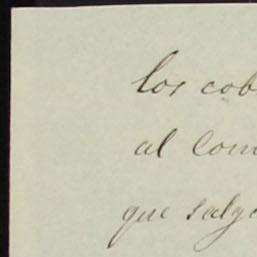 los cob
al com
que salg